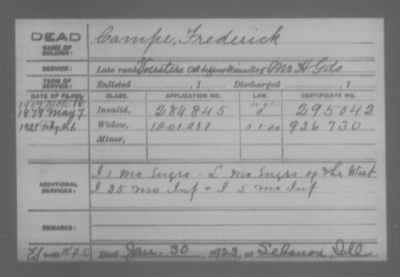 DEAD
NAME OF SOLDIER: Campe, Frederick
SERVICE: Late rank, Mo H Gds
TERM OF SERVICE: Enlisted , 1 Discharged , 1
DATE OF FILING. CLASS. APPLICATION NO. LAW. CERTIFICATE NO.
1879 May 7 Invalid, 284845 295042
Widow, 936730
Minor,
ADDITIONAL SERVICES: I 1 Mo Engrs - L Mo Engrs of the West
I 25 Mo Inf + I 5 Mo Inf
REMARKS:
Died Jan. 30, 1923, at Lebanon, Ill.